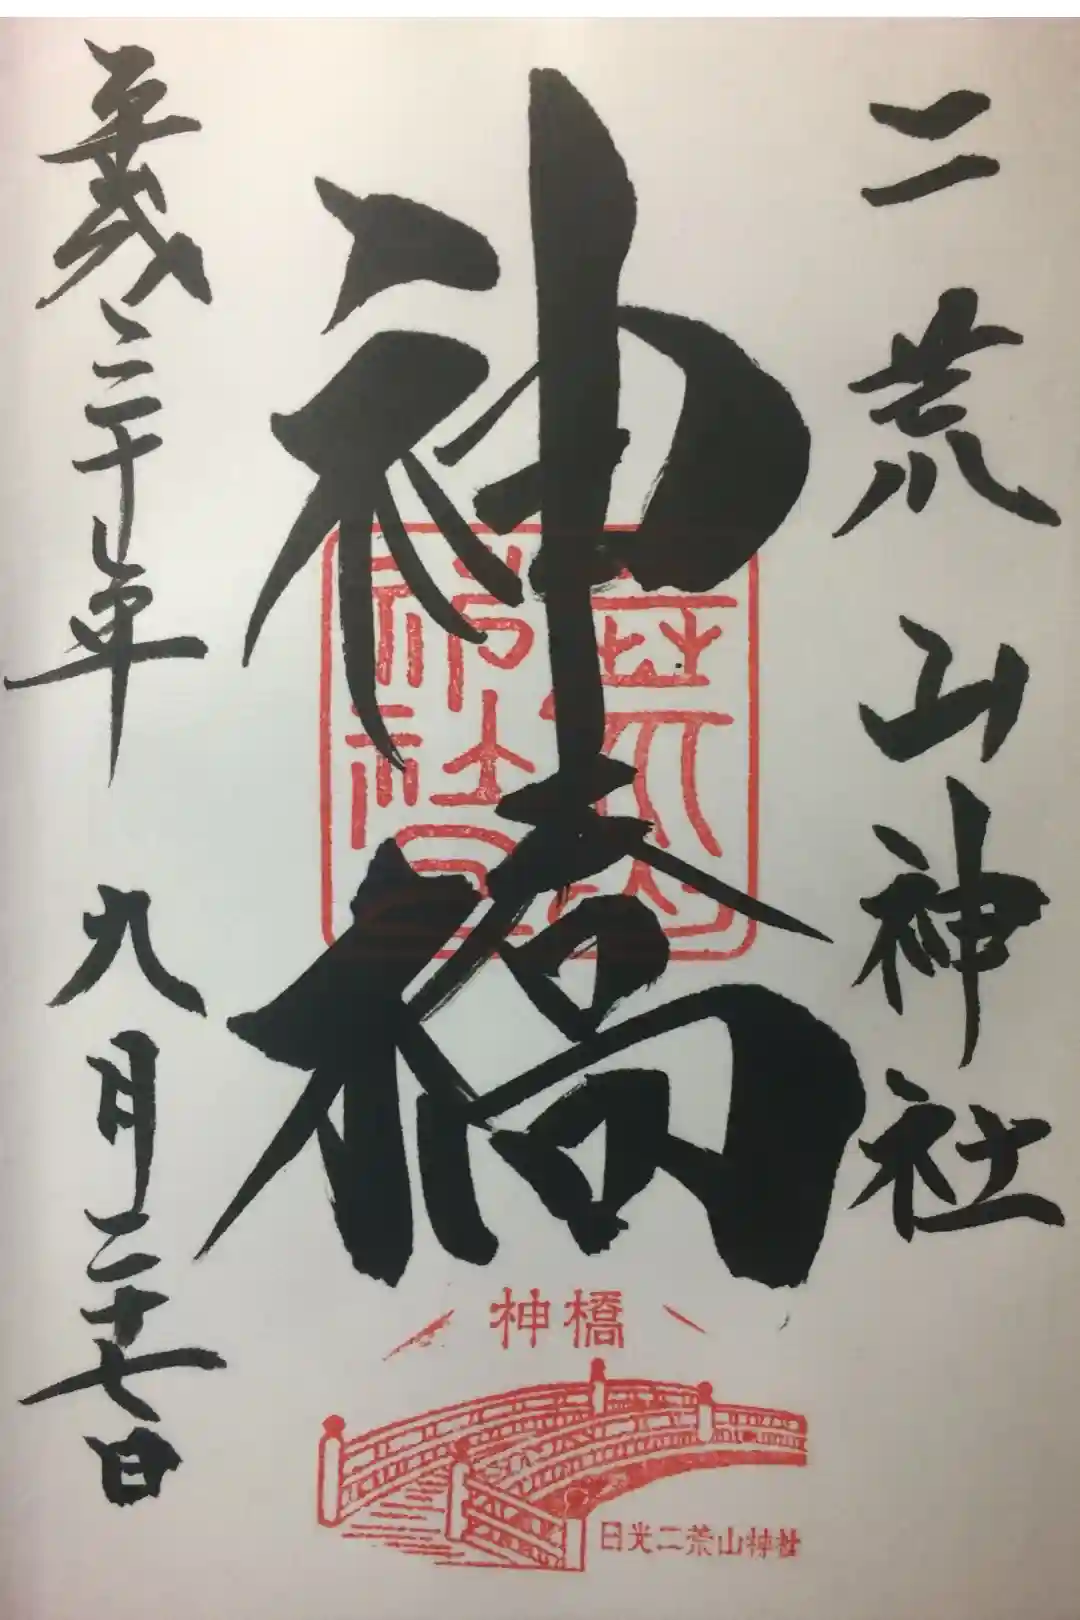 二荒山神社
神橋
平成三十年 九月二十七日
神橋
日光二荒山神社